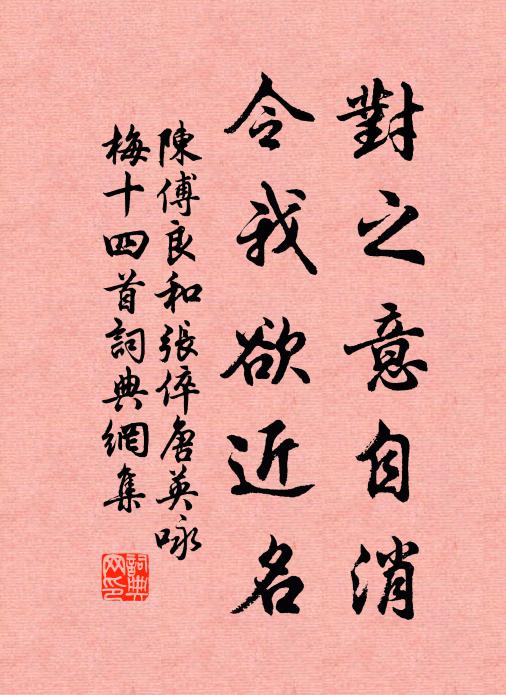 對之意自消
令我欲近名
陳傅良和張倅唐英咏
梅十四首詞典網集
詞典
网印